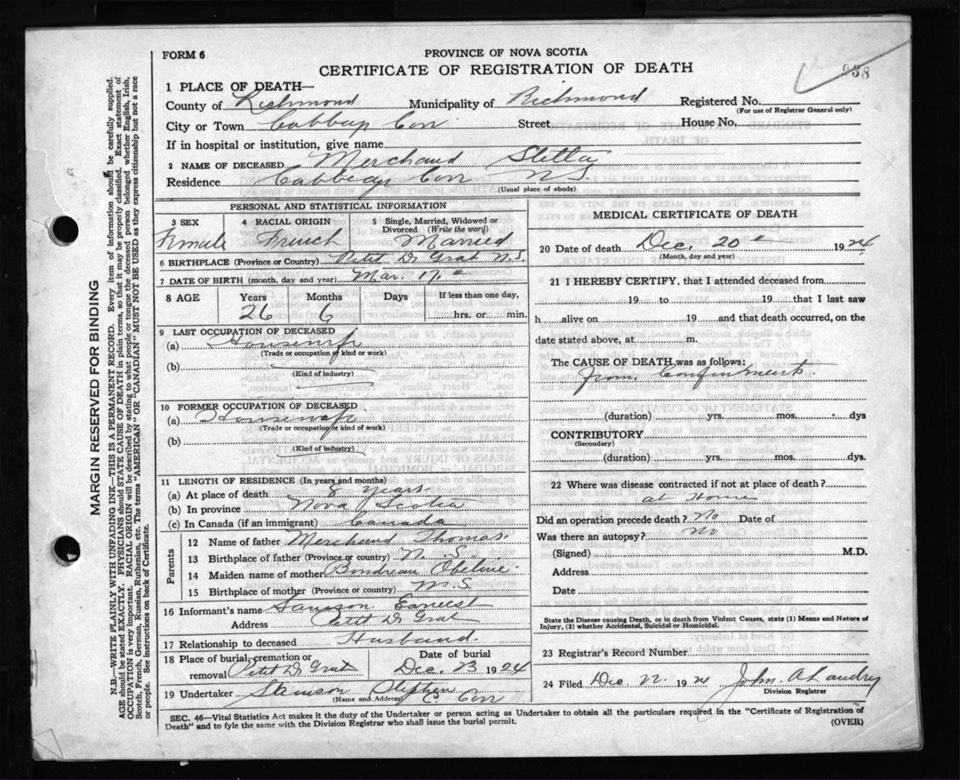 FORM 6
PROVINCE OF NOVA SCOTIA
CERTIFICATE OF REGISTRATION OF DEATH
938
1 PLACE OF DEATH—
County of Richmond Municipality of Richmond Registered No.
(For use of Registrar General only)
City or Town Street House No.
If in hospital or institution, give name
2 NAME OF DECEASED Merchand Stella
Residence N S.
(Usual place of abode)
PERSONAL AND STATISTICAL INFORMATION
3 SEX 4 RACIAL ORIGIN 5 Single, Married, Widowed or Divorced (Write the word)
Female French Married
6 BIRTHPLACE (Province or Country) Petit D. Grat N.S.
7 DATE OF BIRTH (month, day and year) Mar. 17
8 AGE Years Months Days If less than one day,
26 6 hrs. or min.
9 LAST OCCUPATION OF DECEASED
(a) Housewife
(Trade or occupation or kind or work)
(b)
(Kind of industry)
10 FORMER OCCUPATION OF DECEASED
(a) Housewife
(Trade or occupation or kind or work)
(b)
(Kind of industry)
11 LENGTH OF RESIDENCE (In years and months)
(a) At place of death 8 years
(b) In province Nova Scotia
(c) In Canada (if an immigrant) Canada
Parents
12 Name of father Merchand Thomas.
13 Birthplace of father (Province or country) N. S.
14 Maiden name of mother Boudreau
15 Birthplace of mother (Province or country) N.S.
16 Informant's name Samson Earnest
Address Petit D. Grat
17 Relationship to deceased Husband.
18 Place of burial, cremation or removal Petit D. Grat Date of burial Dec. 23 1924
19 Undertaker Samson Stephen
(Name and Address)
MEDICAL CERTIFICATE OF DEATH
20 Date of death Dec. 20 1924
(Month, day and year)
21 I HEREBY CERTIFY, that I attended deceased from
19 to 19 that I last saw
h alive on 19 and that death occurred, on
date stated above, at m.
The CAUSE OF DEATH was as follows:
from Confinement.
(duration) yrs. mos. dys
CONTRIBUTORY
(Secondary)
(duration) yrs. mos. dys.
22 Where was disease contracted if not at place of death?
at Home
Did an operation precede death? No Date of
Was there an autopsy? No
(Signed) M.D.
Address
Date
State the Disease causing Death, or in death from Violent Causes, state (1) Means and Nature of Injury, (2) whether Accidental, Suicidal or Homicidal.
23 Registrar's Record Number
24 Filed Dec 22 1924 John. A Landry
Division Registrar
SEC. 46—Vital Statistics Act makes it the duty of the Undertaker or person acting as Undertaker to obtain all the particulars required in the "Certificate of Registration of
Death" and to fyle the same with the Division Registrar who shall issue the burial permit. (OVER)
MARGIN RESERVED FOR BINDING
N.B.—WRITE PLAINLY WITH UNFADING INK—THIS IS A PERMANENT RECORD. Every item of information should be carefully supplied.
AGE should be stated EXACTLY. PHYSICIANS should STATE CAUSE OF DEATH in plain terms, so that it may be properly classified. Exact statement of
OCCUPATION is very important. RACIAL ORIGIN will be described by stating to what people or tongue the deceased person belonged whether English, Irish,
Scotch, French, German, Russian, Ruthenian, etc. The terms "AMERICAN" OR "CANADIAN" MUST NOT BE USED as they express citizenship but not a race
or people. See instructions on back of Certificate.